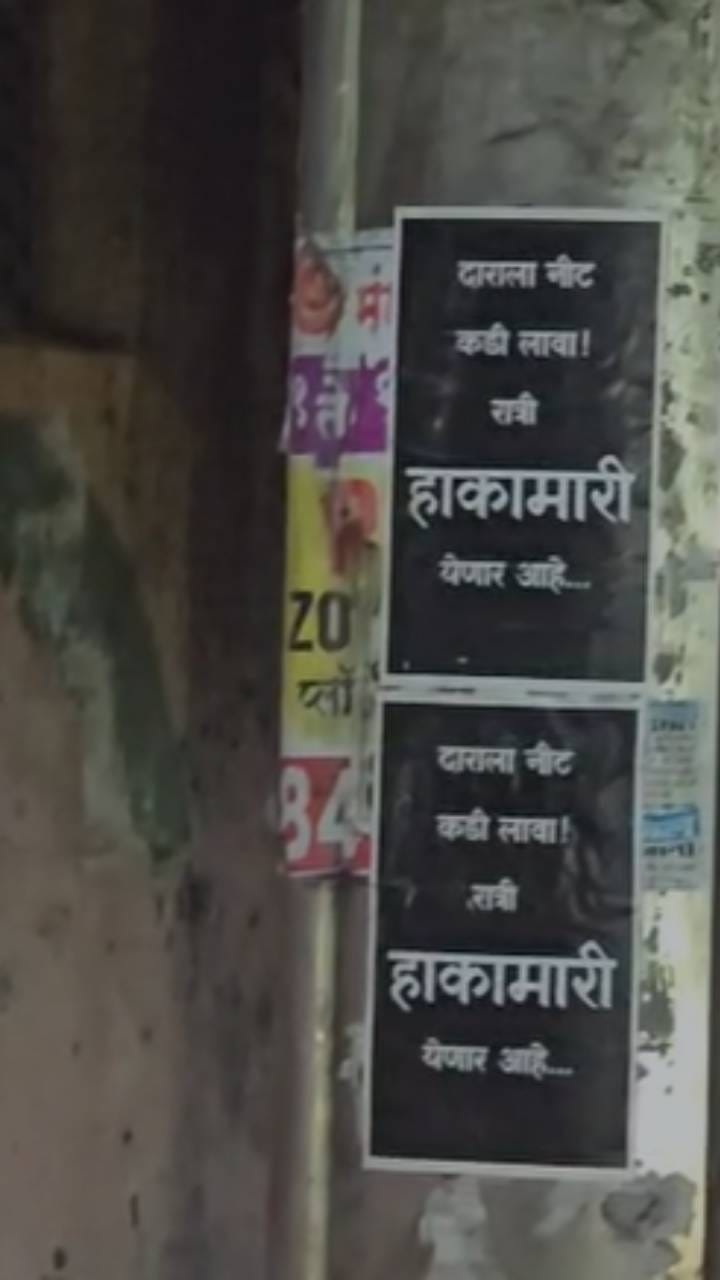 दाराला नीट
कडी लावा!
रात्री
हाकामारी
येणार आहे...
दाराला नीट
कडी लावा!
रात्री
हाकामारी
येणार आहे...
मं
ते
ZO
प्लॉ
84